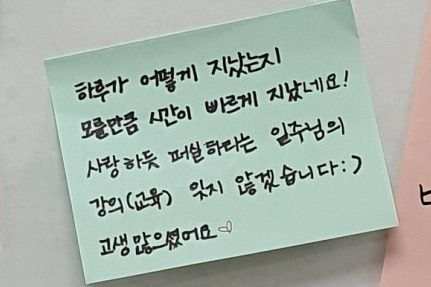 하루가 어떻게 지났는지
모를만큼 시간이 빠르게 지났네요!
사랑하듯 퍼실하라는 일주님의
강의(교육) 잊지 않겠습니다:)
고생많으셨어요♡